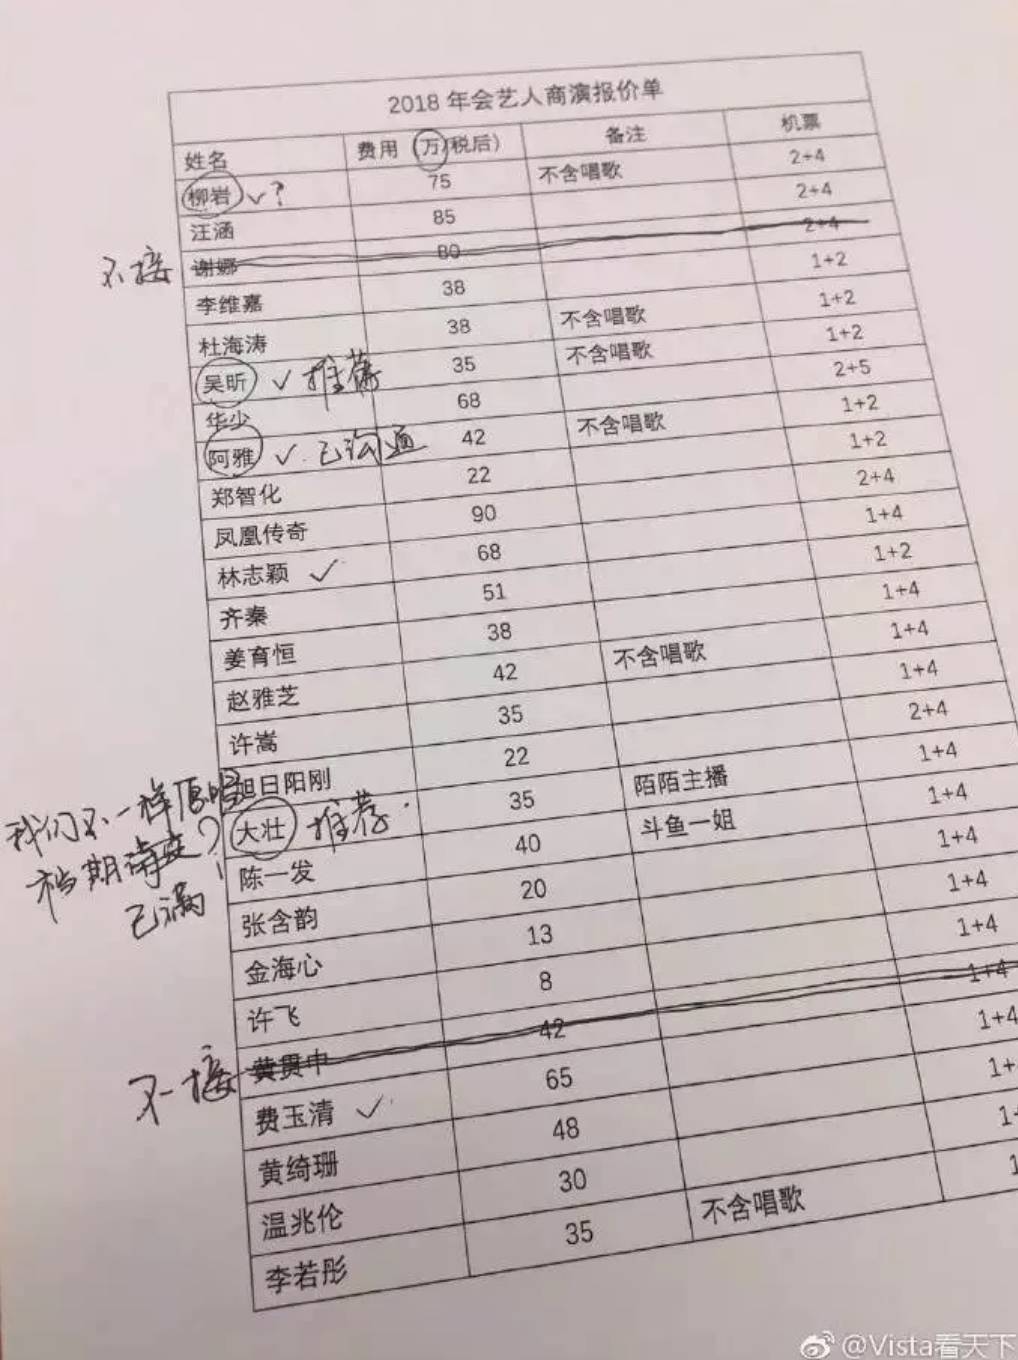 2018 年会艺人商演报价单
姓名 费用 (万/税后) 备注 机票
柳岩 ✓? 75 不含唱歌 2+4
汪涵 85 2+4
不接 谢娜 80 2+4
李维嘉 38 1+2
杜海涛 38 不含唱歌 1+2
吴昕 ✓ 推荐 35 不含唱歌 1+2
华少 68 2+5
阿雅 ✓ 已沟通 42 不含唱歌 1+2
郑智化 22 1+2
凤凰传奇 90 2+4
林志颖 ✓ 68 1+4
齐秦 51 1+2
姜育恒 38 1+4
赵雅芝 42 不含唱歌 1+4
许嵩 35 1+4
旭日阳刚 22 2+4
我们不一样原唱
大壮 推荐 35 陌陌主播 1+4
档期待定?
陈一发 40 斗鱼一姐 1+4
已满!
张含韵 20 1+4
金海心 13 1+4
许飞 8 1+4
不接 黄贯中 42 1+4
费玉清 ✓ 65 1+4
黄绮珊 48 1+
温兆伦 30 1+
李若彤 35 不含唱歌 1
@Vista看天下